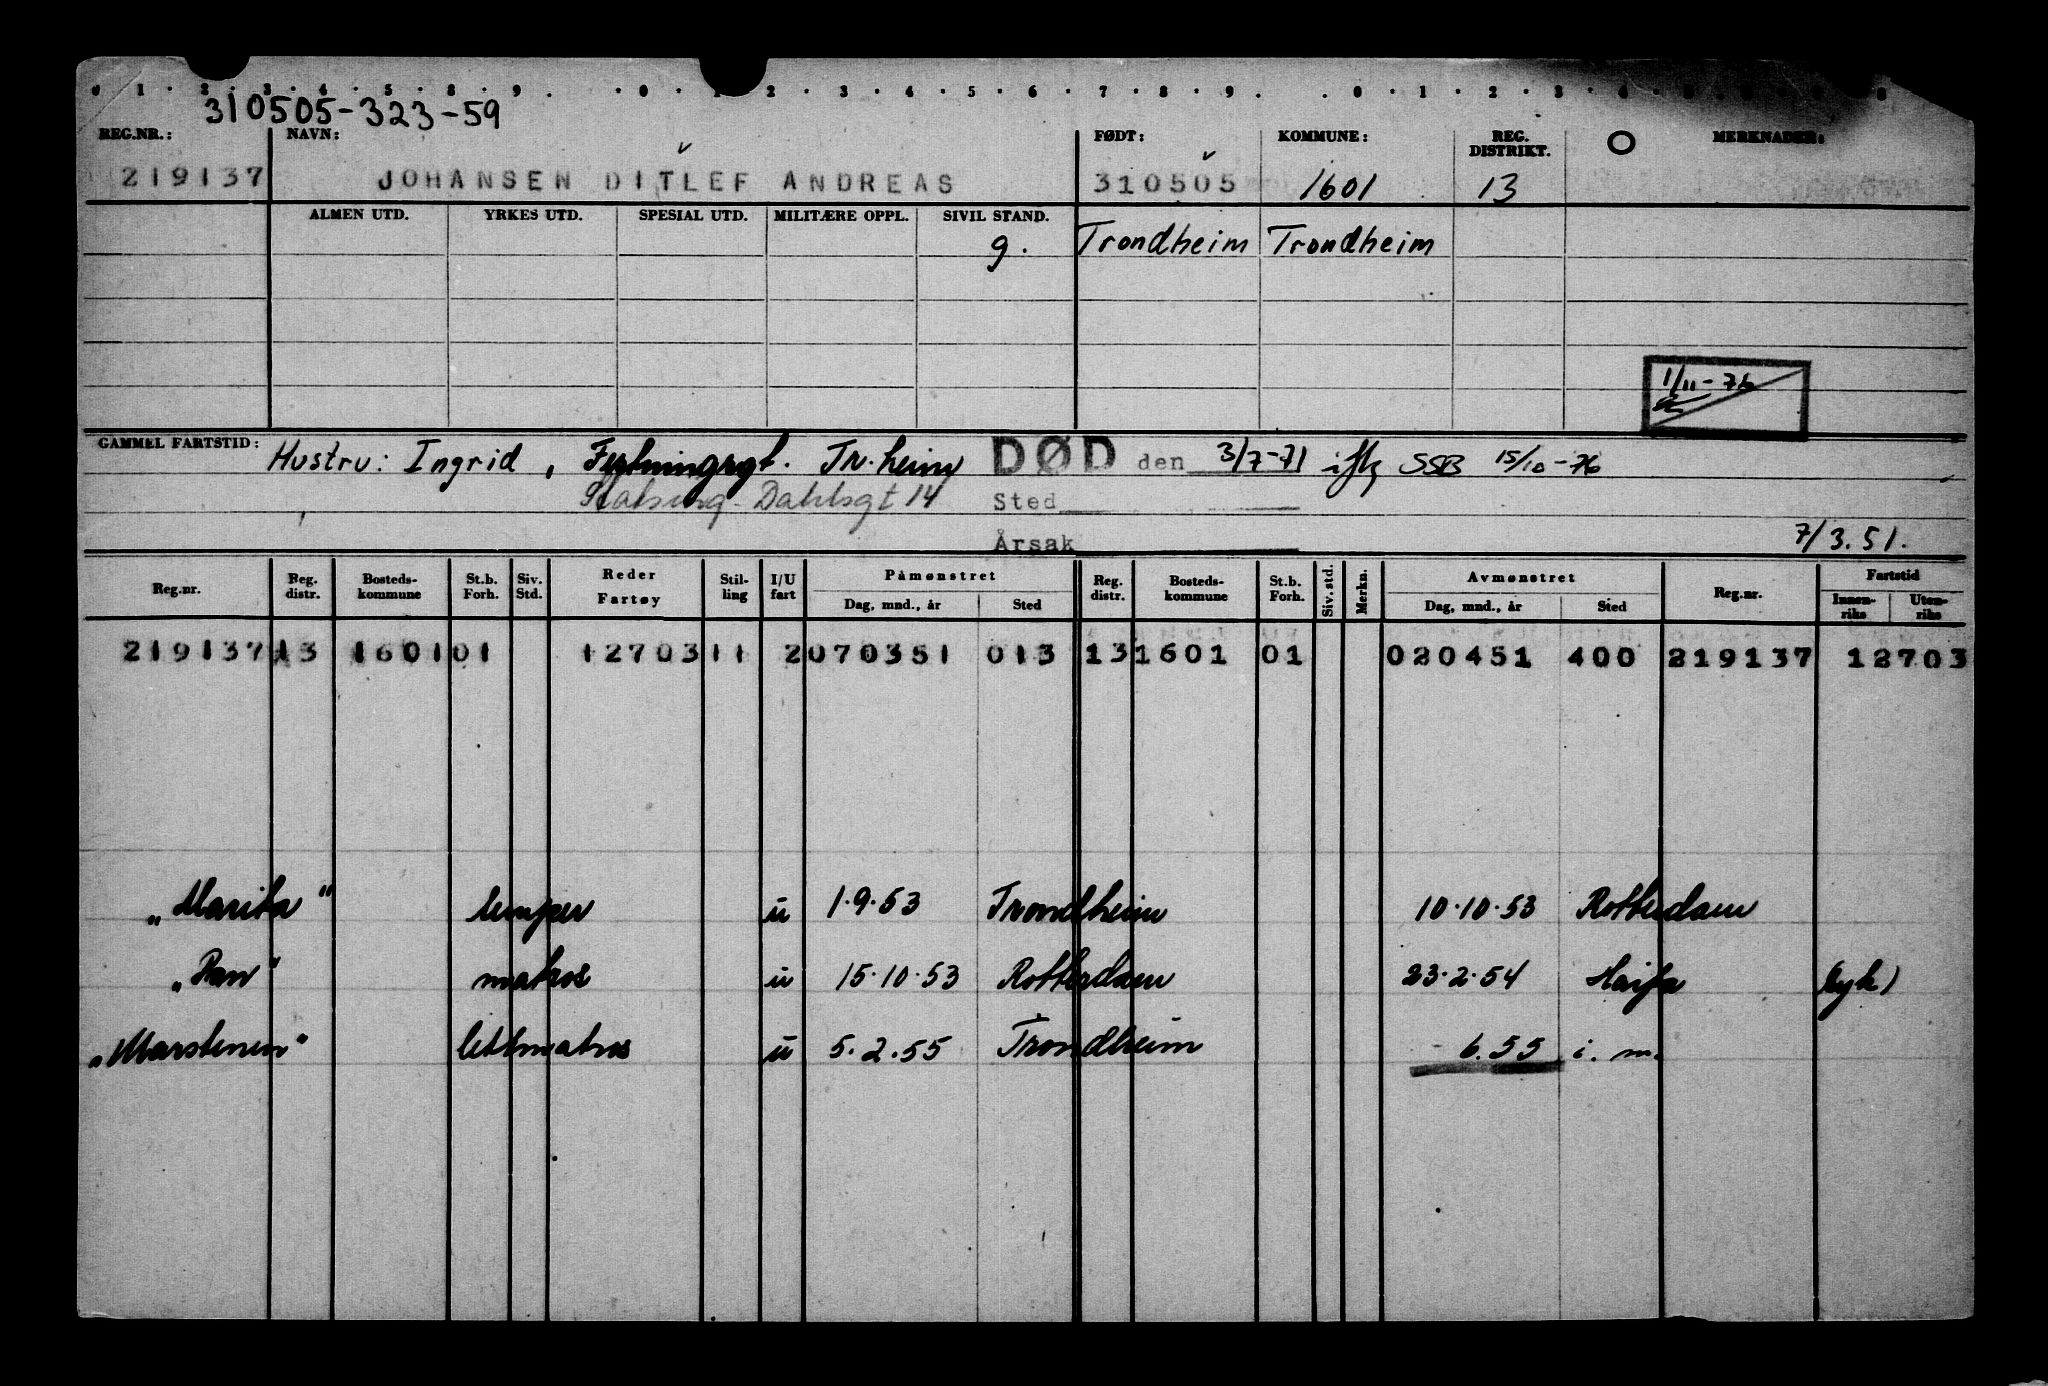 0 . 1 . 2 . 3 . 4 . 5 . 8 . 9 . . 0 . 1 2 . 3 . 4 . 5 . 6 . 7 . 8 . 9 . . 0 . 1 . 2 . 3
310505-323-59
REG.NR.: NAVN: FØDT: KOMMUNE: REG. DISTRIKT. O MERKNADER:
219137 JOHANSEN DITLEF ANDREAS 310505 1601 13
ALMEN UTD. YRKES UTD. SPESIAL UTD. MILITÆRE OPPL. SIVIL STAND.
g. Trondheim Trondheim
1/11-76
GAMMEL FARTSTID: Hustru: Ingrid, Festningsgt. Tr.heim DØD den 3/7-71 iflg SSB 15/10-76
Dahlsgt 14 Sted
Årsak 7/3.51.
Reg.nr. Reg. distr. Bosteds-kommune St.b. Forh. Siv. Std. Reder Fartøy Stil-ling I/U fart Påmønstret Dag, mnd., år Sted Reg. distr. Bosteds-kommune St.b. Forh. Siv. std. Merkn. Avmønstret Dag, mnd., år Sted Reg.nr. Fartstid Innen-riks Uten-riks
219137 13 1601 01 12703 11 2 070351 013 13 1601 01 020451 400 219137 12703
"Marita" lemper u 1.9.53 Trondheim 10.10.53 Rotterdam
"Pan" matros u 15.10.53 Rotterdam 23.2.54 Haifa (syk)
"Marstenen" lettmatros u 5.2.55 Trondheim 6.55 i. m.